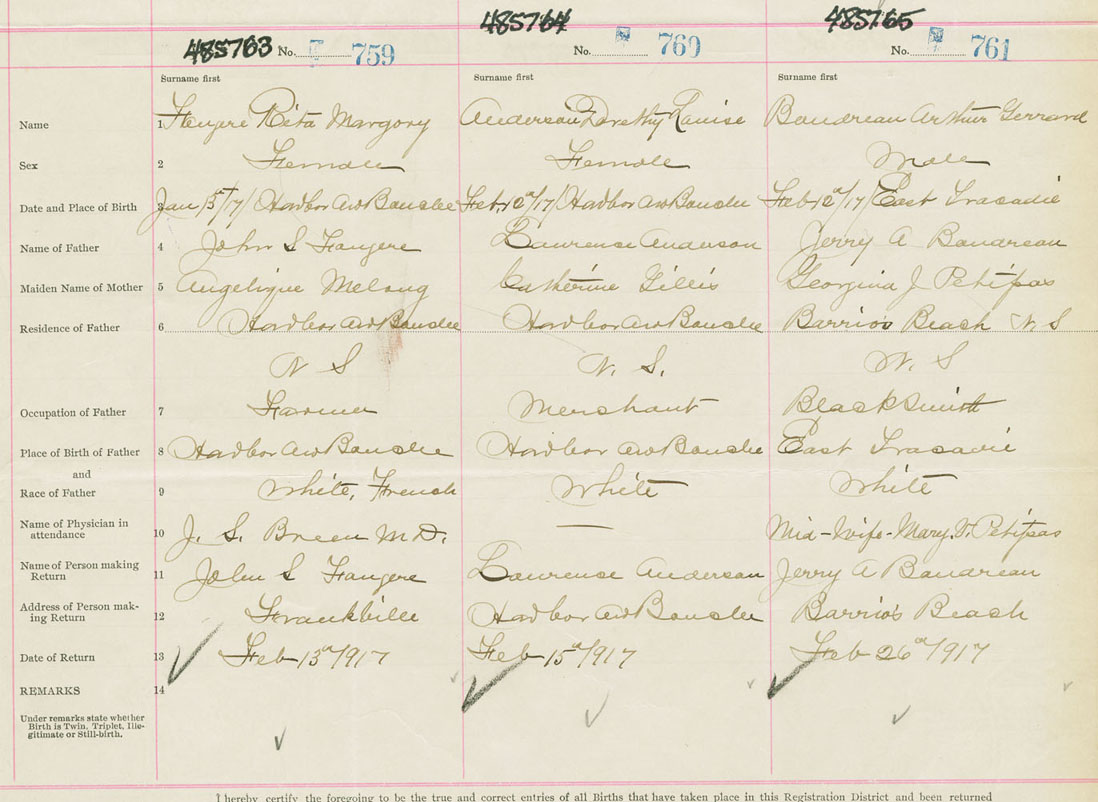 485763 No. 759 485764 No. 760 485765 No. 761
Surname first Surname first Surname first
Name 1 Fougere Rita Margory Anderson Dorethy Louise Boudreau Arthur Gerrard
Sex 2 Female Female Male
Date and Place of Birth 3 Jan 15/17/ Harbor au Bouche Feb 12/17/ Harbor au Bouche Feb 12/17/ East Tracadie
Name of Father 4 John S Fougere Laurence Anderson Jerry A Boudreau
Maiden Name of Mother 5 Angelique Melong Catherine Gillis Georgina J Petipas
Residence of Father 6 Harbor au Bouche Harbor au Bouche Barrio's Beach N S
N S N. S. N. S
Occupation of Father 7 Farmer Merchant Blacksmith
Place of Birth of Father 8 Harbor au Bouche Harbor au Bouche East Tracadie
and
Race of Father 9 White, French White White
Name of Physician in attendance 10 J. S. Breen M.D. — Mid-Wife-Mary Petipas
Name of Person making Return 11 John S Fougere Laurence Anderson Jerry A Boudreau
Address of Person making Return 12 Frankville Harbor au Bouche Barrio's Beach
Date of Return 13 Feb 13th/1917 Feb 15th/1917 Feb 26th/1917
REMARKS 14
Under remarks state whether
Birth is Twin, Triplet, Ille-
gitimate or Still-birth.
I hereby certify the foregoing to be the true and correct entries of all Births that have taken place in this Registration District and been returned